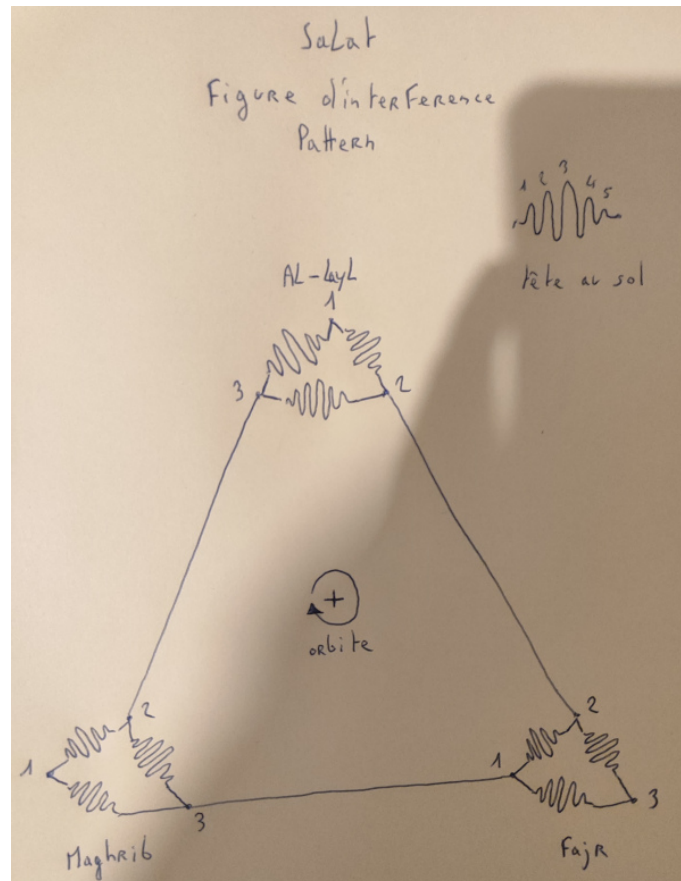 SaLat
Figure d'interference
Pattern
1 2 3 4 5
tête au sol
AL-LayL
1
3
2
orbite
2
1
3
Maghrib
2
1
3
FajR